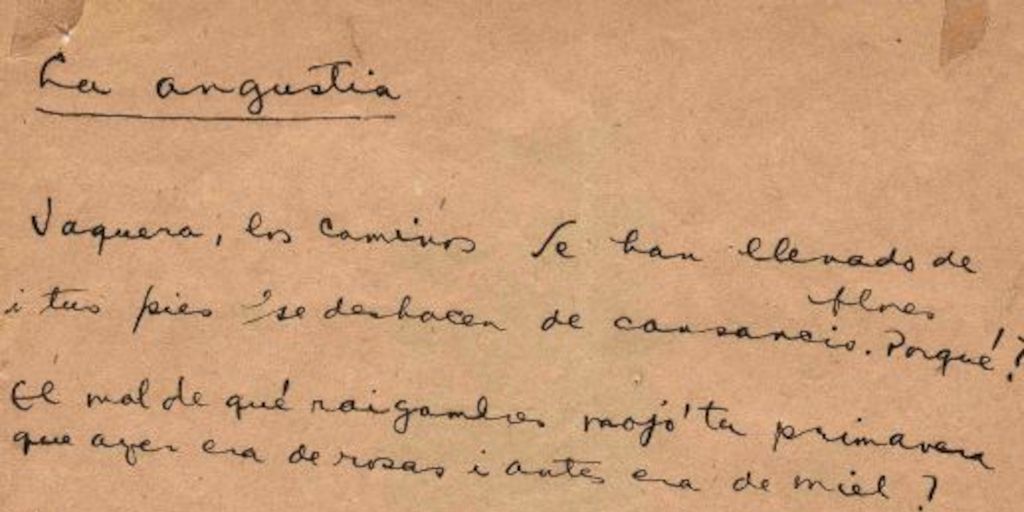 La angustia
Vaquera, los caminos se han llenado de
flores
i tus pies se deshacen de cansancio. Porqué?
El mal de qué raigambres mojó tu primavera
que ayer era de rosas i antes era de miel?